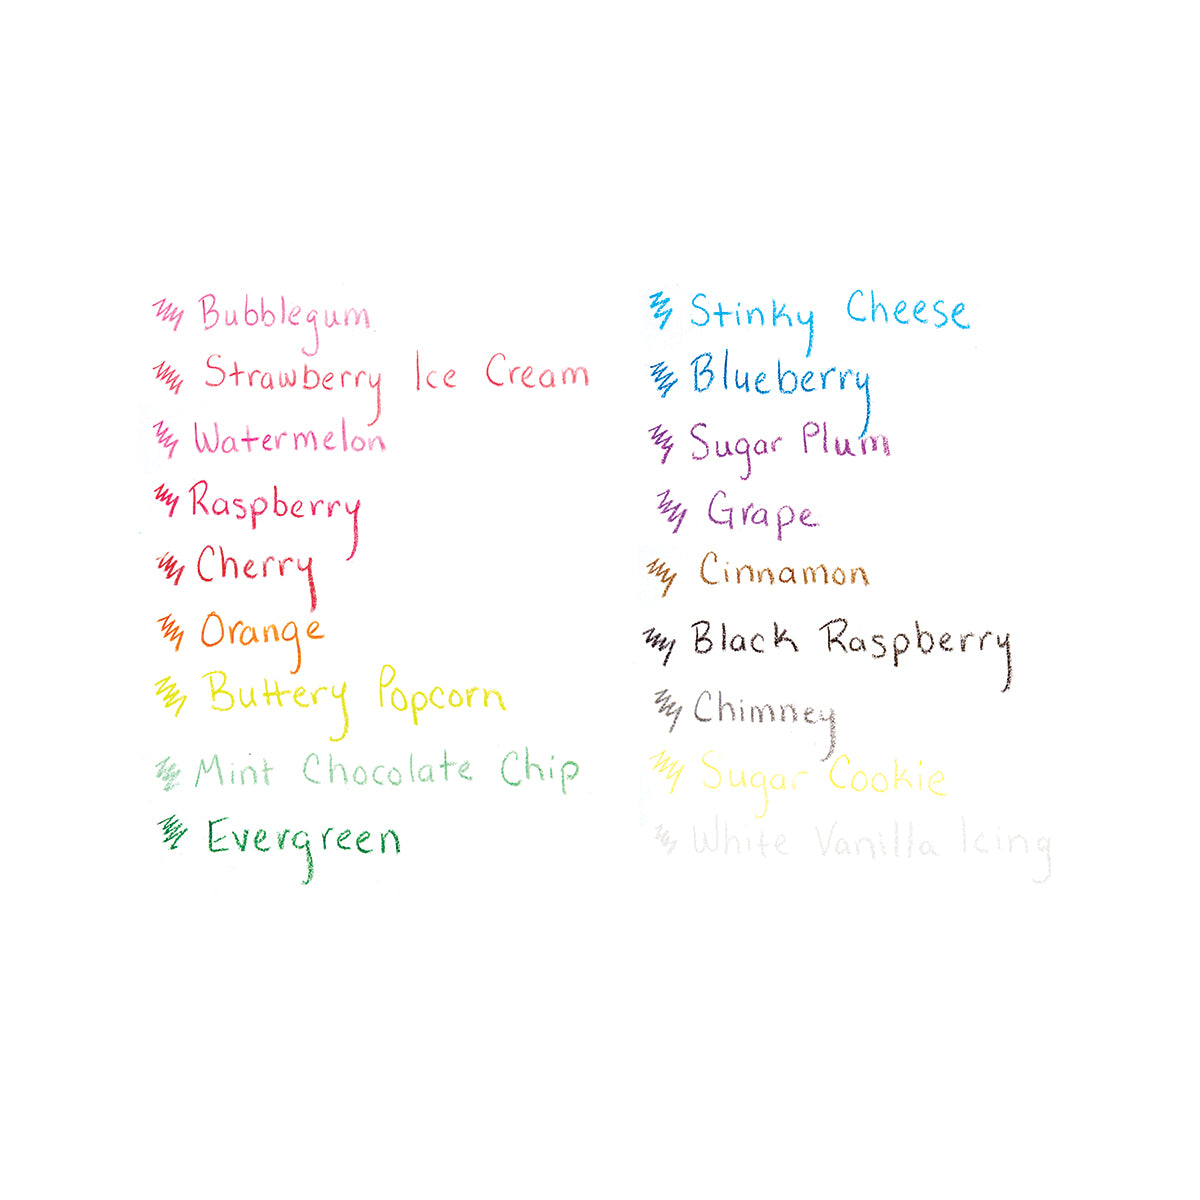 Bubblegum
Strawberry Ice Cream
Watermelon
Raspberry
Cherry
Orange
Buttery Popcorn
Mint Chocolate Chip
Evergreen
Stinky Cheese
Blueberry
Sugar Plum
Grape
Cinnamon
Black Raspberry
Chimney
Sugar Cookie
White Vanilla Icing